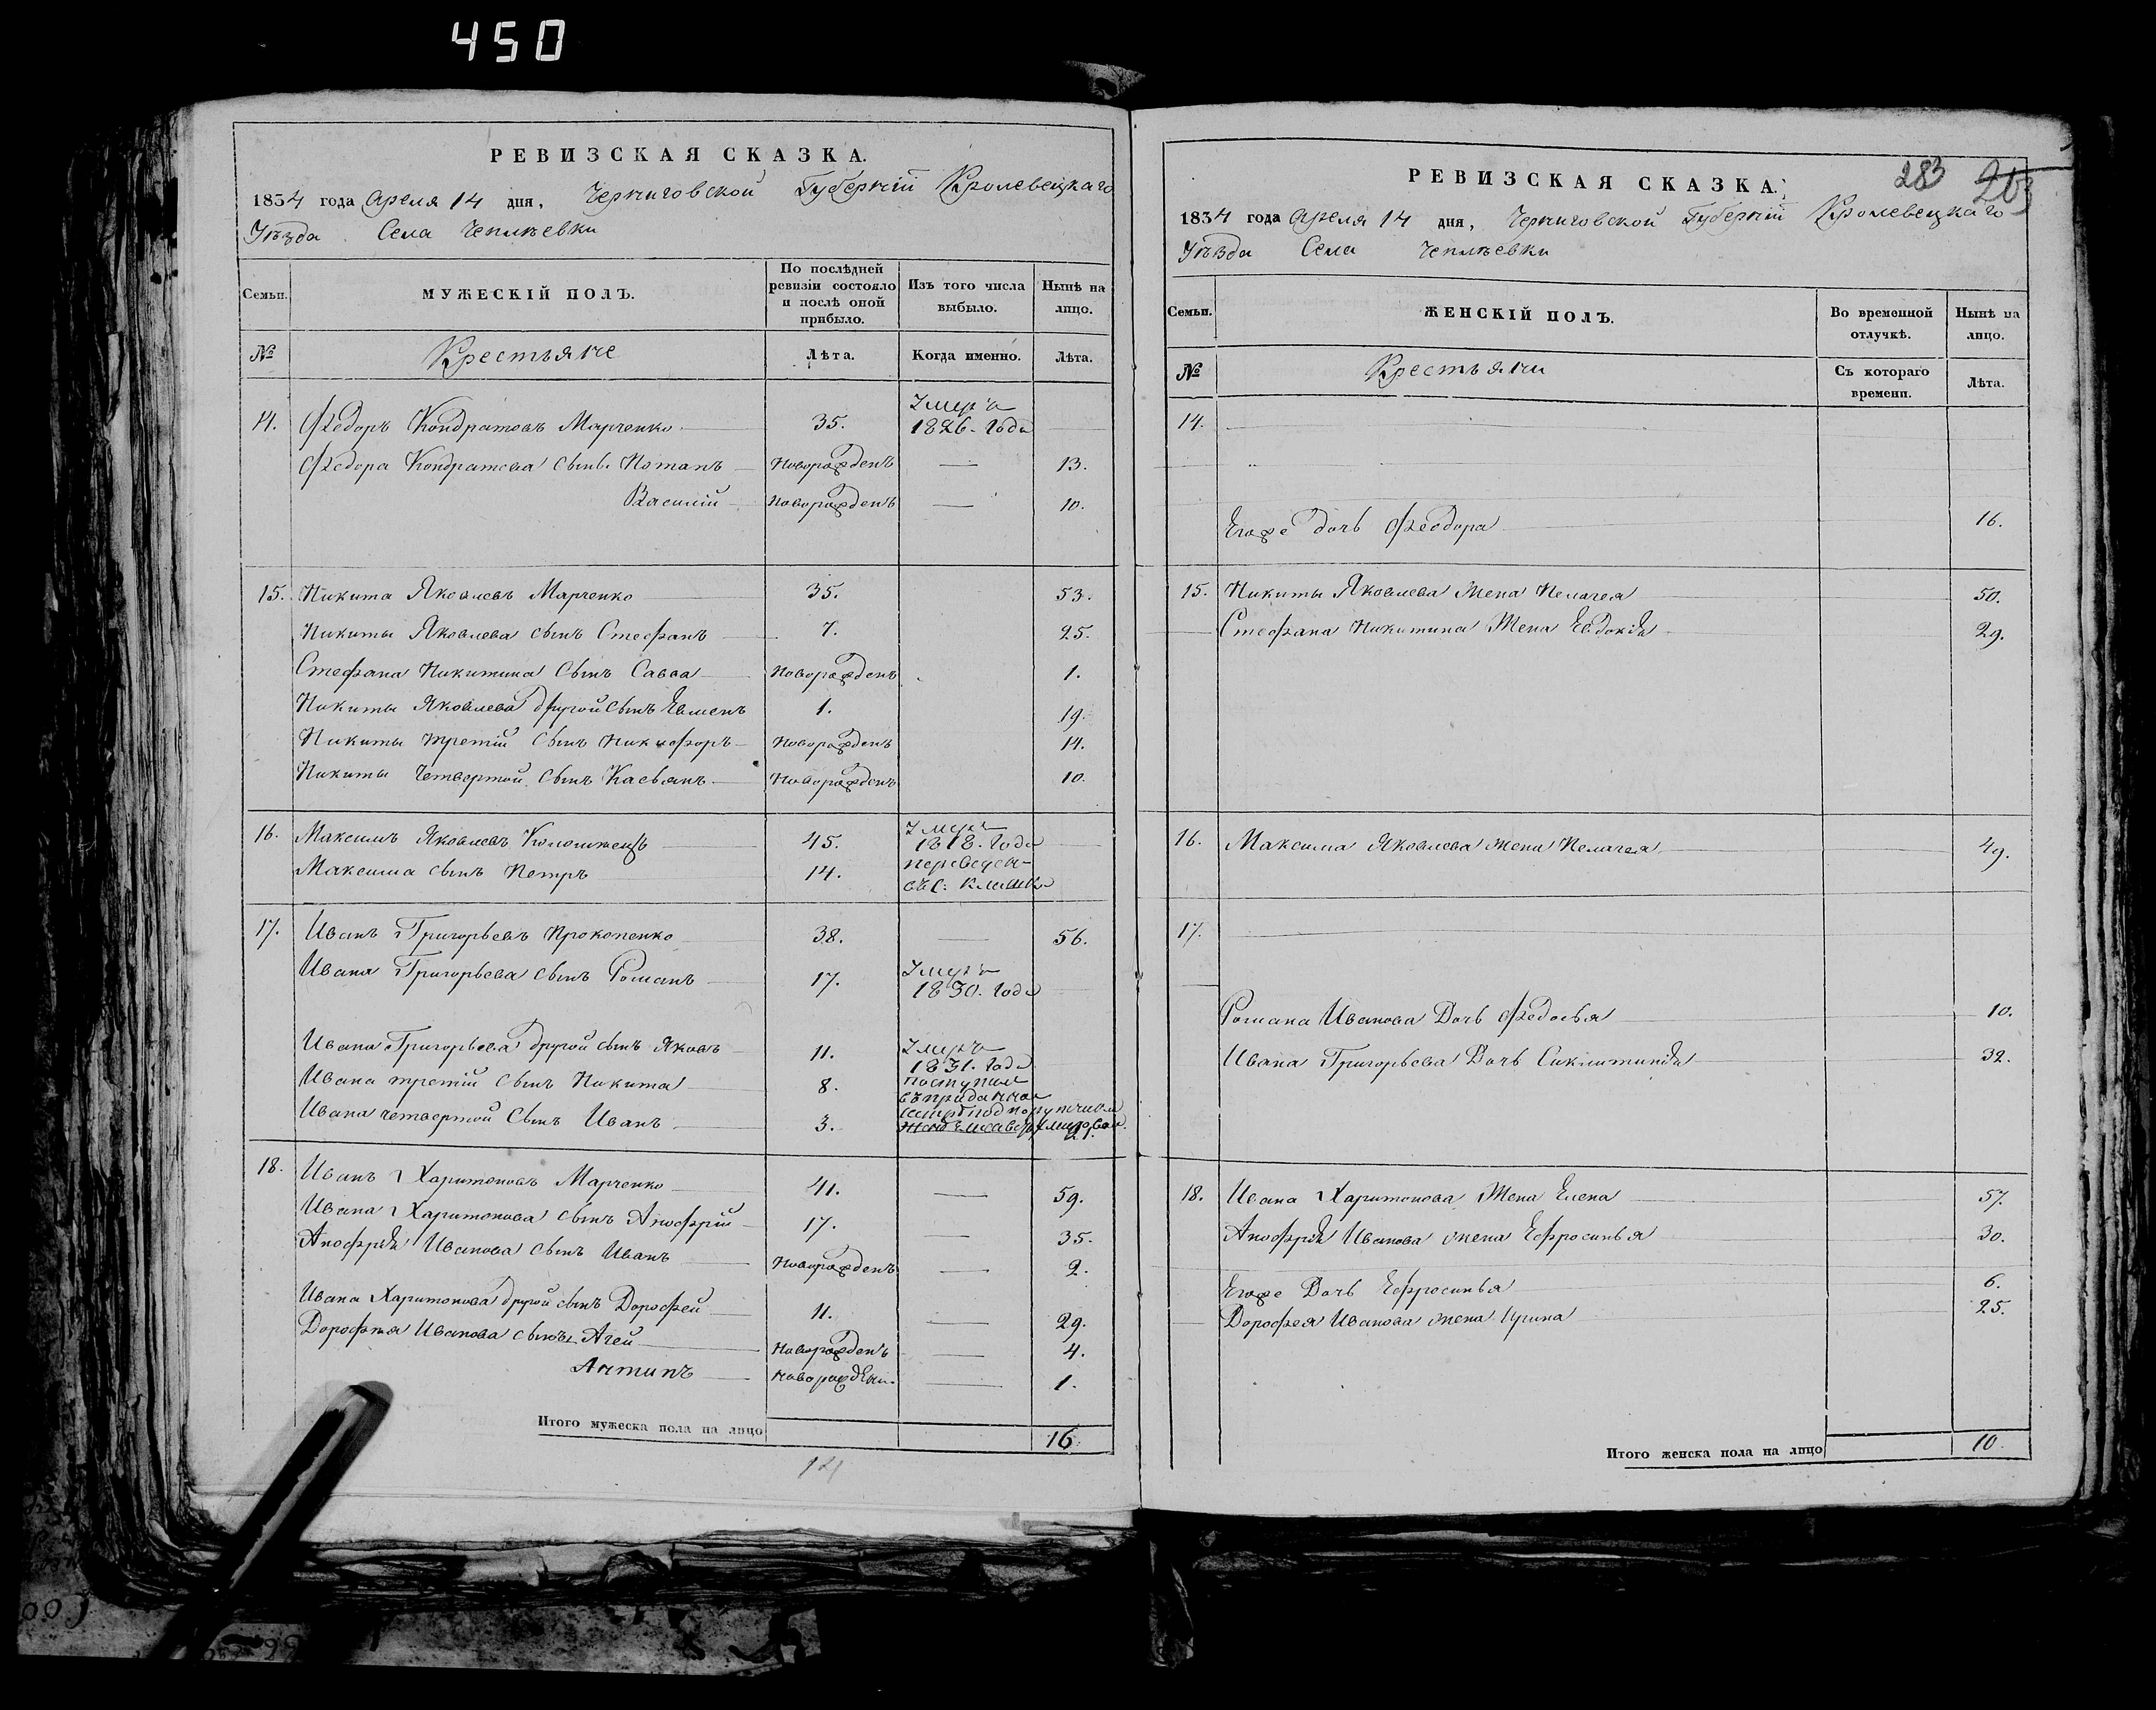 450
РЕВИЗСКАЯ СКАЗКА.
1834 года Апреля 14 дня, Черниговской Губерніи Кролевецкаго
Уѣзда Села Чеплѣевки
Семьи.
МУЖЕСКІЙ ПОЛЪ.
По послѣдней ревизіи состояло и послѣ оной прибыло.
Изъ того числа выбыло.
Нынѣ на лицо.
№
Крестьяне
Лѣта.
Когда именно.
Лѣта.
14. Федоръ Кондратовъ Марченко 35. Умеръ 1826. Года
Федора Кондратова сынъ. Потапъ Новорожденъ 13.
Василій Новорожденъ 10.
15. Никита Яковлевъ Марченко 35. 53.
Никиты Яковлева сынъ Стефанъ 7. 25.
Стефана Никитина Сынъ Савва Новорожденъ 1.
Никиты Яковлева другой сынъ Евменъ 1. 19.
Никиты третій Сынъ Никифоръ Новорожденъ 14.
Никиты Четвертой Сынъ Касьянъ Новорожденъ 10.
16. Максимъ Яковлевъ 45. Умеръ 1818. Года
Максима сынъ Петръ 14. переведен въ с.
17. Иванъ Григорьевъ Прокопенко 38. 56.
Ивана Григорьева сынъ Романъ 17. Умеръ 1830. Года
Ивана Григорьева другой сынъ Яковъ 11. Умеръ 1831. Года
Ивана третій сынъ Никита 8. поступил въ приданное
Ивана четвертой Сынъ Иванъ 3. 21.
18. Иванъ Харитоновъ Марченко 41. 59.
Ивана Харитонова сынъ Анофрій 17. 35.
Анофрія Иванова сынъ Иванъ Новорожденъ 2.
Ивана Харитонова другой сынъ Дорофей 11. 29.
Дорофея Иванова сыновья Агей Новорожденъ 4.
Антипъ новорожден. 1.
Итого мужеска пола на лицо 16.
14
283
203
РЕВИЗСКАЯ СКАЗКА.
1834 года Апреля 14 дня, Черниговской Губерніи Кролевецкаго
Уѣзда Села Чеплѣевки
Семьи.
ЖЕНСКІЙ ПОЛЪ.
Во временной отлучкѣ.
Нынѣ на лицо.
№
Крестьяни
Съ котораго времени.
Лѣта.
14.
Егоже дочь Феодора 16.
15. Никиты Яковлева Жена Пелагея 50.
Стефана Никитина Жена Евдокія 29.
16. Максима Яковлева жена Пелагея 49.
17.
Романа Иванова Дочь Федосья 10.
Ивана Григорьева Дочь Сиклитикія 32.
18. Ивана Харитонова Жена Елена 57.
Анофрія Иванова жена Ефросинья 30.
Егоже Дочь Ефросинья 6.
Дорофея Иванова жена Ирина 25.
Итого женска пола на лицо 10.